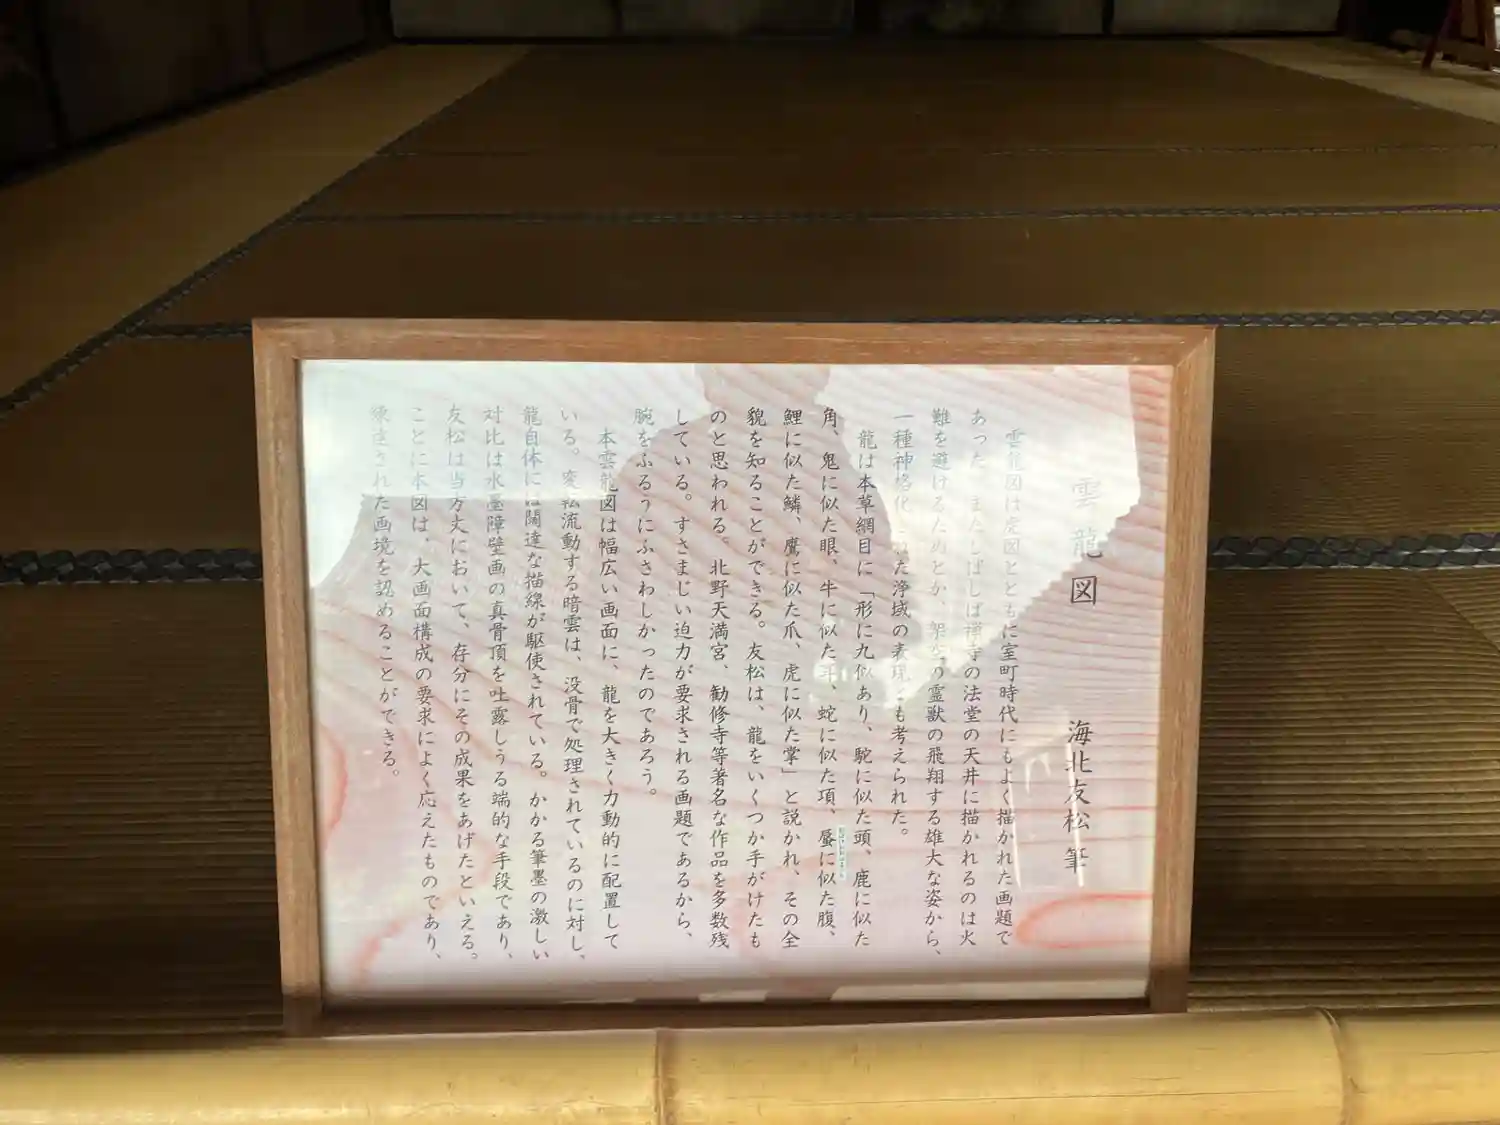 雲龍図
海北友松 筆
雲龍図は虎図とともに室町時代にもよく描かれた画題で
あった。またしばしば禅寺の法堂の天井に描かれるのは火
難を避けるためとか、架空の霊獣の飛翔する雄大な姿から、
一種神格化された浄域の表現とも考えられた。
龍は本草綱目に「形に九似あり、駝に似た頭、鹿に似た
角、鬼に似た眼、牛に似た耳、蛇に似た項、蜃に似た腹、
鯉に似た鱗、鷹に似た爪、虎に似た掌」と説かれ、その全
貌を知ることができる。友松は、龍をいくつか手がけたも
のと思われる。北野天満宮、勧修寺等著名な作品を多数残
している。すさまじい迫力が要求される画題であるから、
腕をふるうにふさわしかったのであろう。
本雲龍図は幅広い画面に、龍を大きく力動的に配置して
いる。変転流動する暗雲は、没骨で処理されているのに対し、
龍自体には闊達な描線が駆使されている。かかる筆墨の激しい
対比は水墨障壁画の真骨頂を吐露しうる端的な手段であり、
友松は当方丈において、存分にその成果をあげたといえる。
ことに本図は、大画面構成の要求によく応えたものであり、
された画境を認めることができる。